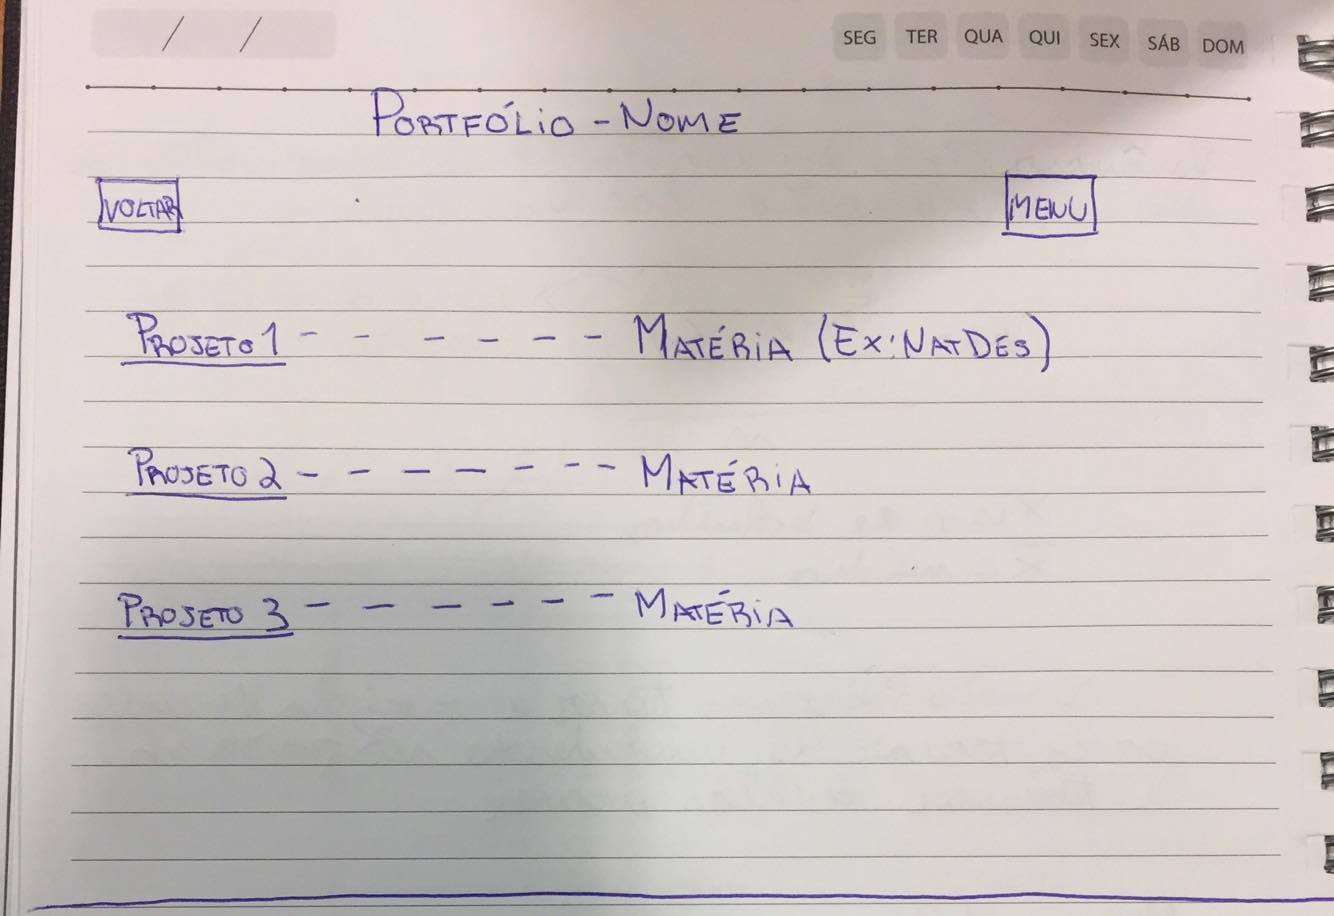 / /
SEG TER QUA QUI SEX SÁB DOM
PORTFÓLIO - NOME
VOLTAR MENU
PROJETO 1 - - - - - - MATÉRIA (EX: NATDES)
PROJETO 2 - - - - - - - MATÉRIA
PROJETO 3 - - - - - - MATÉRIA